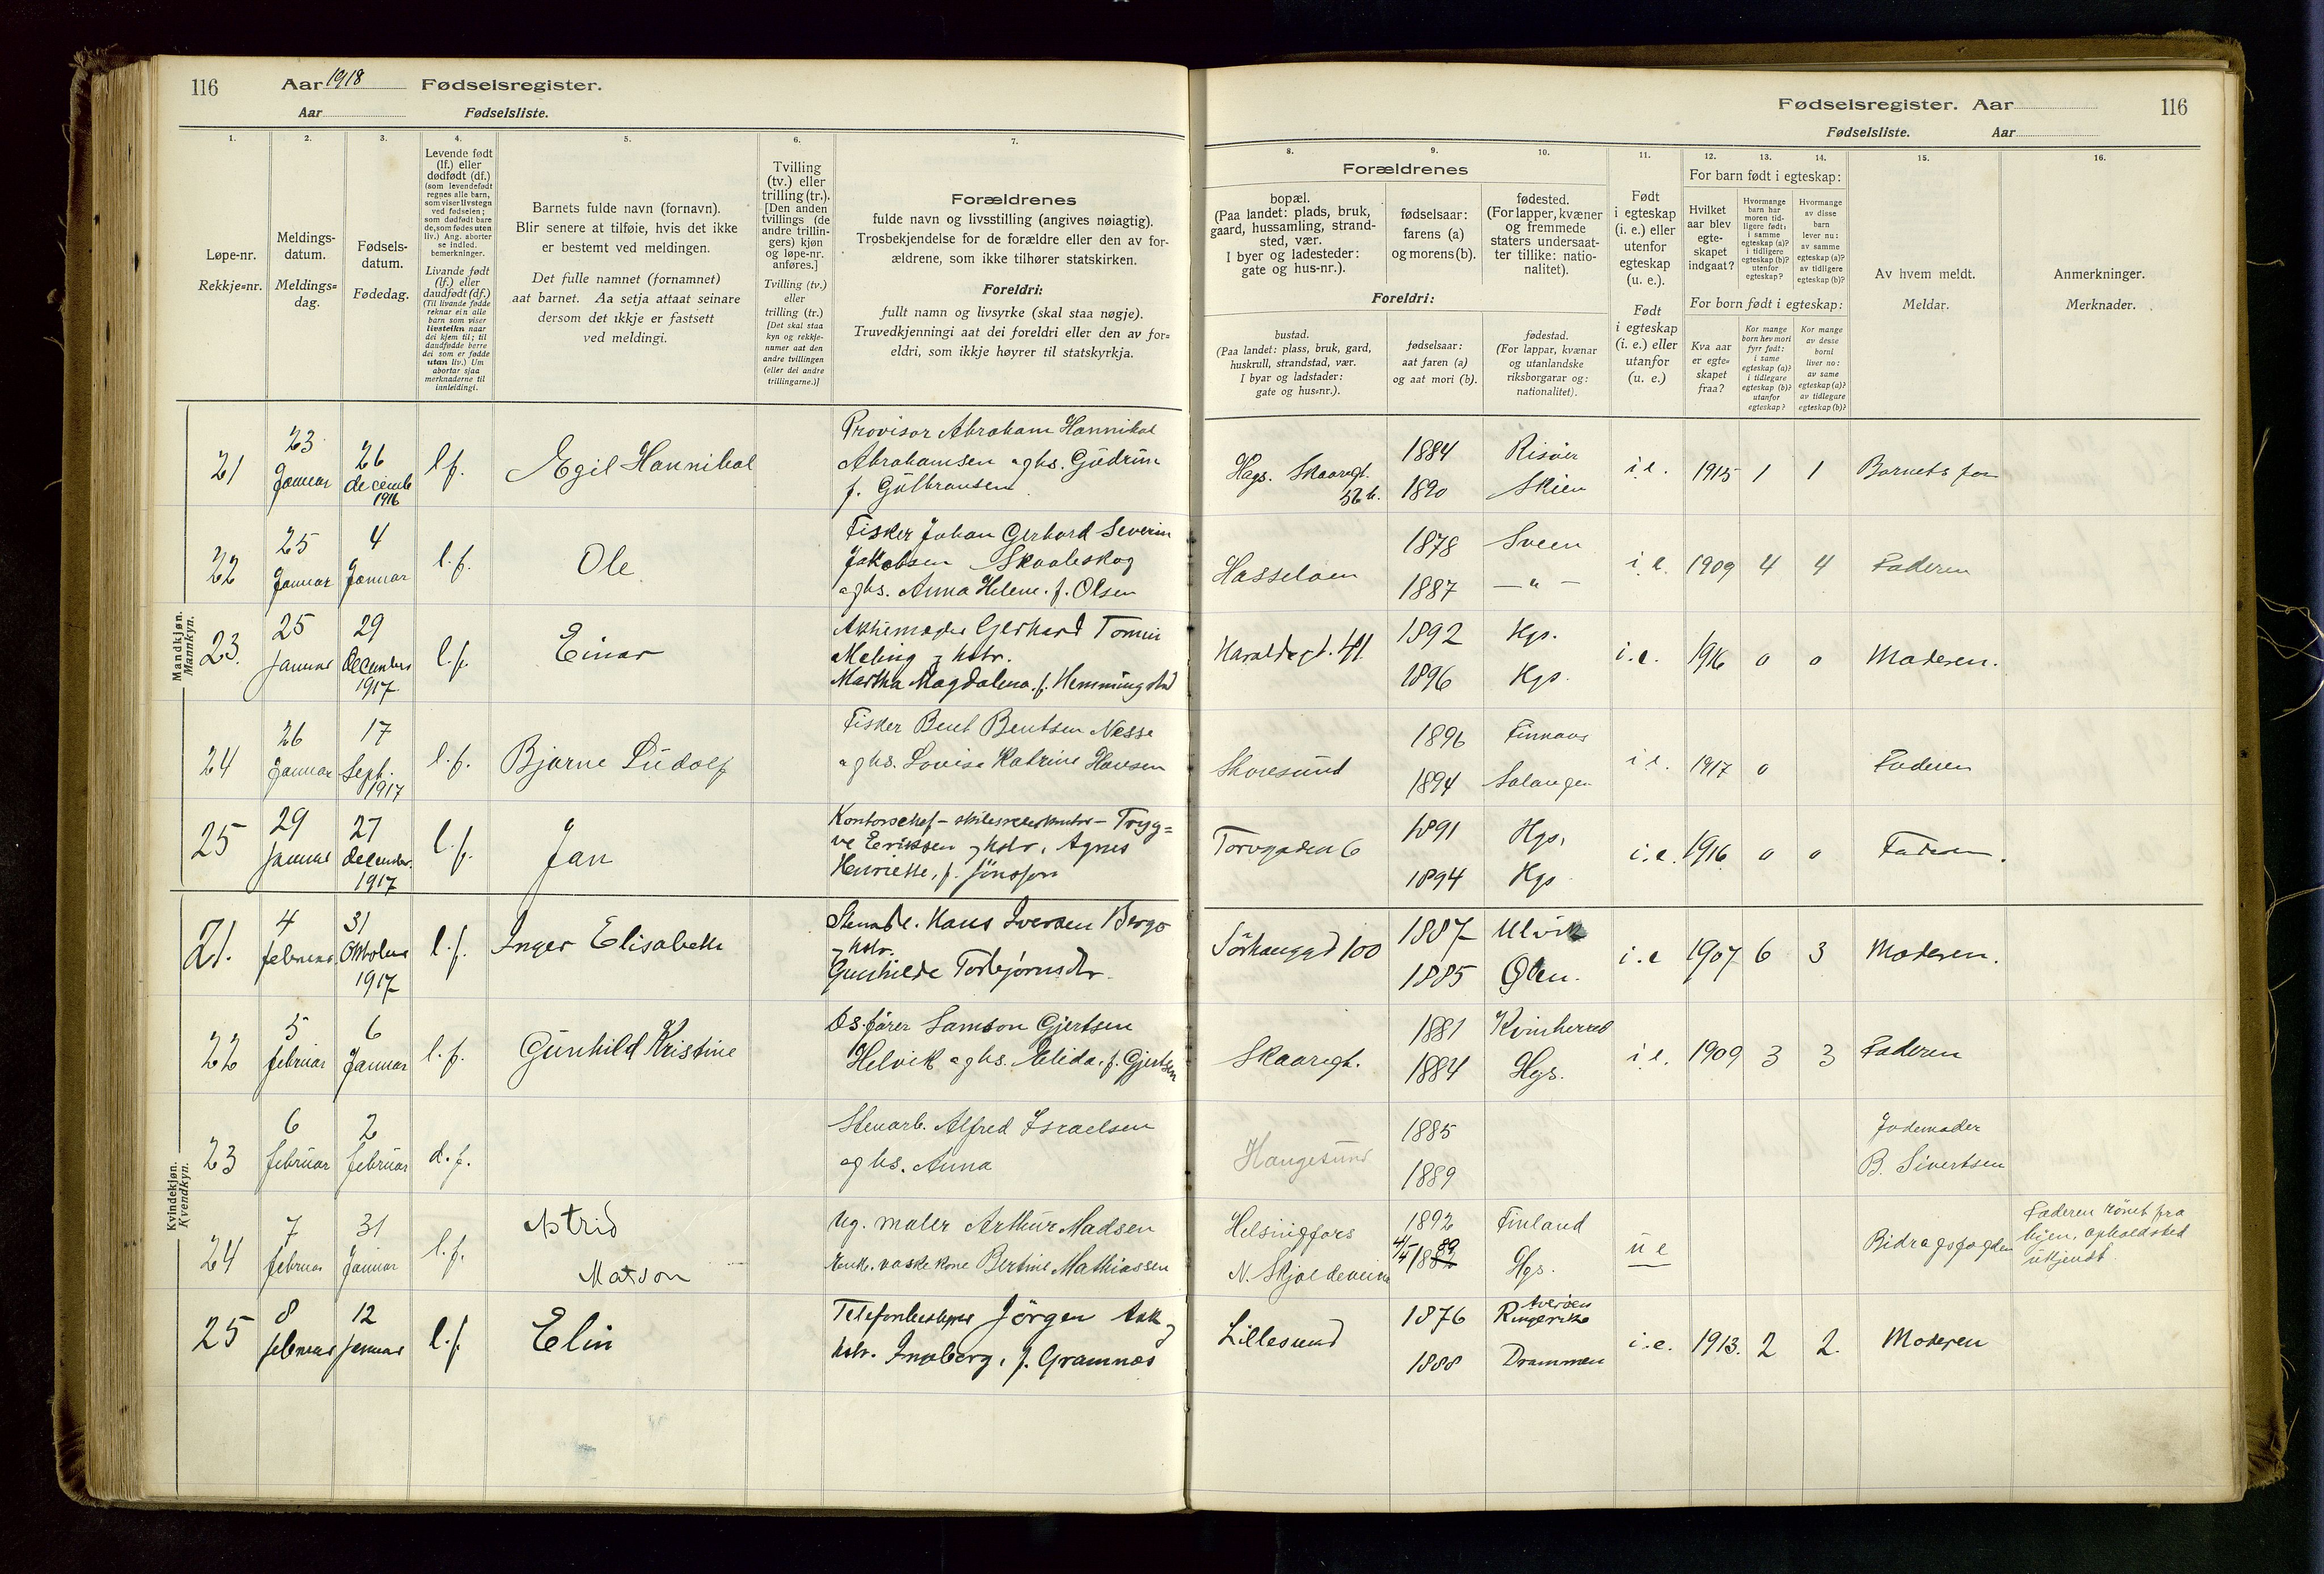 116 Aar 1918 Fødselsregister.
Aar Fødselsliste.
Fødselsregister. Aar 116
Fødselsliste. Aar
1. 2. 3. 4. 5. 6. 7.
Løpe-nr.
Rekkje=nr.
Meldings-
datum.
Meldings=
dag.
Fødsels-
datum.
Fødedag.
Levende født
(lf.) eller
dødfødt (df.)
(som levendefødt
regnes alle barn,
som viser livstegn
ved fødselen;
som dødfødt bare
de, som fødes uten
liv.) Ang. aborter
se indled.
bemerkninger.
Livande født
(lf.) eller
daudfødt (df.)
(Til livande fødde
reknar ein alle
born som viser
livsteikn naar
dei kjem til; til
daudfødde berre
dei som er fødde
utan liv.) Um
abortar sjaa
merknaderne til
innleidingi.
Barnets fulde navn (fornavn).
Blir senere at tilføie, hvis det ikke
er bestemt ved meldingen.
Det fulle namnet (fornamnet)
aat barnet. Aa setja attaat seinare
dersom det ikkje er fastsett
ved meldingi.
Tvilling
(tv.) eller
trilling (tr.).
[Den anden
tvillings (de
andre trillin-
gers) kjøn
og løpe-nr.
anføres.]
Tvilling (tv.)
eller
trilling (tr.)
[Det skal staa
kyn og rekkje-
numer aat den
andre tvillingen
(eller dei andre
trillingarne.)]
Forældrenes
fulde navn og livsstilling (angives nøiagtig).
Trosbekjendelse for de forældre eller den av for-
ældrene, som ikke tilhører statskirken.
Foreldri:
fullt namn og livsyrke (skal staa nøgje).
Truvedkjenningi aat dei foreldri eller den av for=
eldri, som ikkje høyrer til statskyrkja.
8. 9. 10. 11. 12. 13. 14. 15. 16.
Forældrenes
bopæl.
(Paa landet: plads, bruk,
gaard, hussamling, strand-
sted, vær.
I byer og ladesteder:
gate og hus-nr.).
fødselsaar:
farens (a)
og morens (b).
fødested.
(For lapper, kvæner
og fremmede
staters undersaat-
ter tillike: natio-
nalitet).
Foreldri:
bustad.
(Paa landet: plass, bruk, gard,
huskrull, strandstad, vær.
I byar og ladstader:
gate og hus=nr.).
fødselsaar:
aat faren (a)
og aat mori (b).
fødestad.
(For lappar, kvænar
og utanlandske
riksborgarar og:
nationalitet).
Født
i egteskap
(i. e.) eller
utenfor
egteskap
(u. e.).
Født
i egteskap
(i. e.) eller
utanfor
(u. e.)
For barn født i egteskap:
Hvilket
aar blev
egte-
skapet
indgaat?
Hvormange
barn har
moren tid-
ligere født:
i samme
egteskap (a)?
i tidligere
egteskap (b)?
utenfor
egteskap?
Hvormange
av disse
barn
lever nu:
av samme
egteskap (a)?
av tidligere
egteskap (b)?
For born født i egteskap:
Kva aar
er egte=
skapet
fraa?
Kor mange
born hev mori
fyrr født:
i same
egteskap (a)?
i tidlegare
egteskap (b)?
utanfor
egteskap?
Kor mange
av desse
borni
liver no:
av same
egteskap (a)?
av tidlegare
egteskap (b)?
Av hvem meldt.
Meldar.
Anmerkninger.
Merknader.
Mandkjøn.
Mannkyn.
21 23 Januar 26 decemb 1916 l f. Egil Hannibal
Provisor Abraham Hannibal
Abrahamsen og hs. Gudrun
f. Gulbransen
Hags. Skaaregt. 1884 Risöer i. e. 1915 1 1 Barnets far
1890 Skien
22 25 Januar 4 Januar l. f. Ole
Fisker Johan Gerhard Severin
Jakobsen Skaaleskog
og hs. Anna Helene. f. Olsen
Hasseløen 1878 Sveen i. e. 1909 4 4 Faderen
1887 — " —
23. 25 Januar 29 December 1917 l. f. Einar
Gerhard Tomin
Meling og hstr.
Martha Magdalena. f. Hemmingstad
Haraldsgt. 141. 1892 Hgs. i. e. 1916 0 0 Moderen.
1896 Hgs.
24 26 Januar 17 Sept. 1917 l. f. Bjarne Ludolf
Fisker Bent Bentsen Nesse
og hs. Lovise Katrine Hansen
Skoresund 1896 Finnaas i. e. 1917 0 Faderen
1894 Salangen
25 29 Januar 27 december. 1917 l. f. Jan
Kontorschef – – Tryg=
ve Eeriksen og hstr. Agnes
Henriette, f. Jönsson
Torvgaden 6 1891 Hgs. i. e. 1916 0 0 Faderen.
1894 Hgs
Kvindekjøn.
Kvendkyn.
21. 4 februar 31 Oktober 1917 l. f. Inger Elisabeth
Hans Iversen Berge
og hstr.
Gunhilde Torbjørnsdtr.
Sörhauggt 100 1887 Ulvik i. e 1907 6 3 Moderen.
1885 Ølen.
22 5 februar 6 Januar l. f. Gunhild Kristine
Ds. förer Samson Gjertsen
Helvik og hs. Elida. f. Gjertsen
Skaaregt. 1881 Kvinherred i. e. 1909 3 3 Faderen
1884 Hgs.
23 6 februar 2 februar d. f.
Stenarb. Alfred Israelsen
og hs. Anna
Haugesund 1885 Jordemoder
1889 B. Sivertsen
24 7 februar 31 Januar l. f. Astrid
Matson
Ug. maler Arthur Madsen
Enk. vaskekone Bertine Mathiassen
Helsingfors 1892 Finland u e Bidragsfogden
N. Skjoldeveien 4/5 1882 89 Hgs.
Faderen römt fra
byen, opholdsted
ukjendt.
25 8 februar 12 Januar l. f Elin
Telefonbestyrer Jörgen Ask og
hstr. Ingeberg, f. Gramnæs
Lillesund 1876 Ringerike i. e. 1913. 2 2. Moderen
1888 Drammen